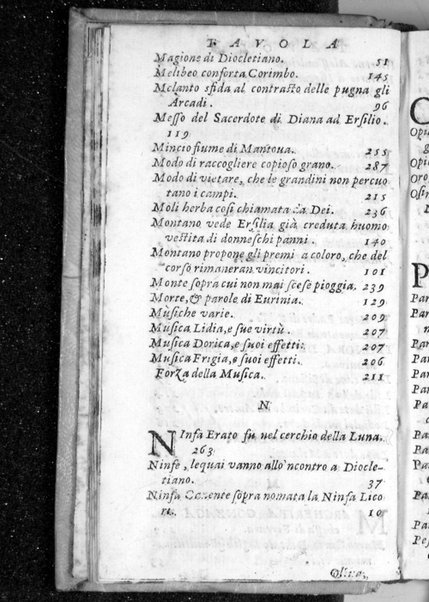 TAVOLA
Magione di Diocletiano. 51
Melibeo conforta Corimbo. 145
Melanto sfida al contrasto delle pugna gli
Arcadi. 96
Messo del Sacerdote di Diana ad Ersilio.
119
Mincio fiume di Mantoua. 255
Modo di raccogliere copioso grano. 287
Modo di vietare, che le grandini non percuo
tano i campi. 215
Moli herba così chiamata da Dei. 236
Montano vede Ersilia già creduta huomo
vestita di donneschi panni. 140
Montano propone gli premi a coloro, che del
corso rimaneran vincitori. 101
Monte sopra cui non mai scese pioggia. 239
Morte, & parole di Eurinia. 129
Musiche varie. 209
Musica Lidia, e sue virtù. 207
Musica Dorica, e suoi effetti. 207
Musica Frigia, e suoi effetti. 206
Forza della Musica. 211
N
NInfa Erato fu nel cerchio della Luna.
263
Ninfe, lequai vanno allo'ncontro a Diocle-
tiano. 37
Ninfa sopra nomata la Ninfa Lico
ri. 10